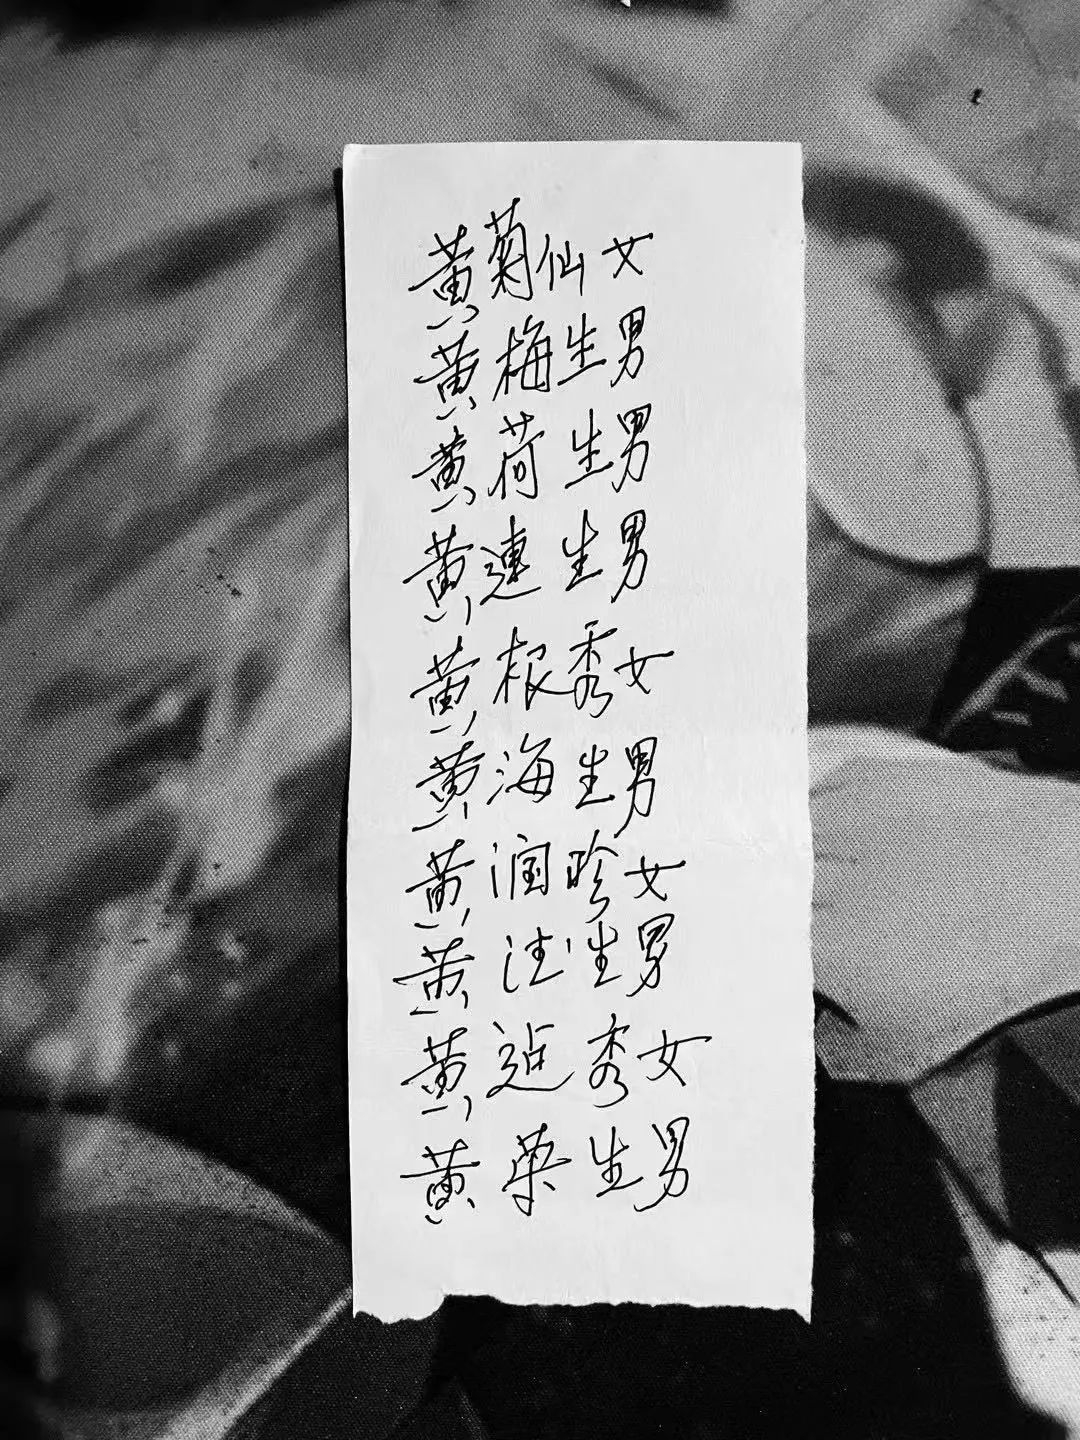 黄菊仙女
黄梅生男
黄荷生男
黄連生男
黄根秀女
黄海生男
黄润珍女
黄注生男
黄 秀女
黄荣生男